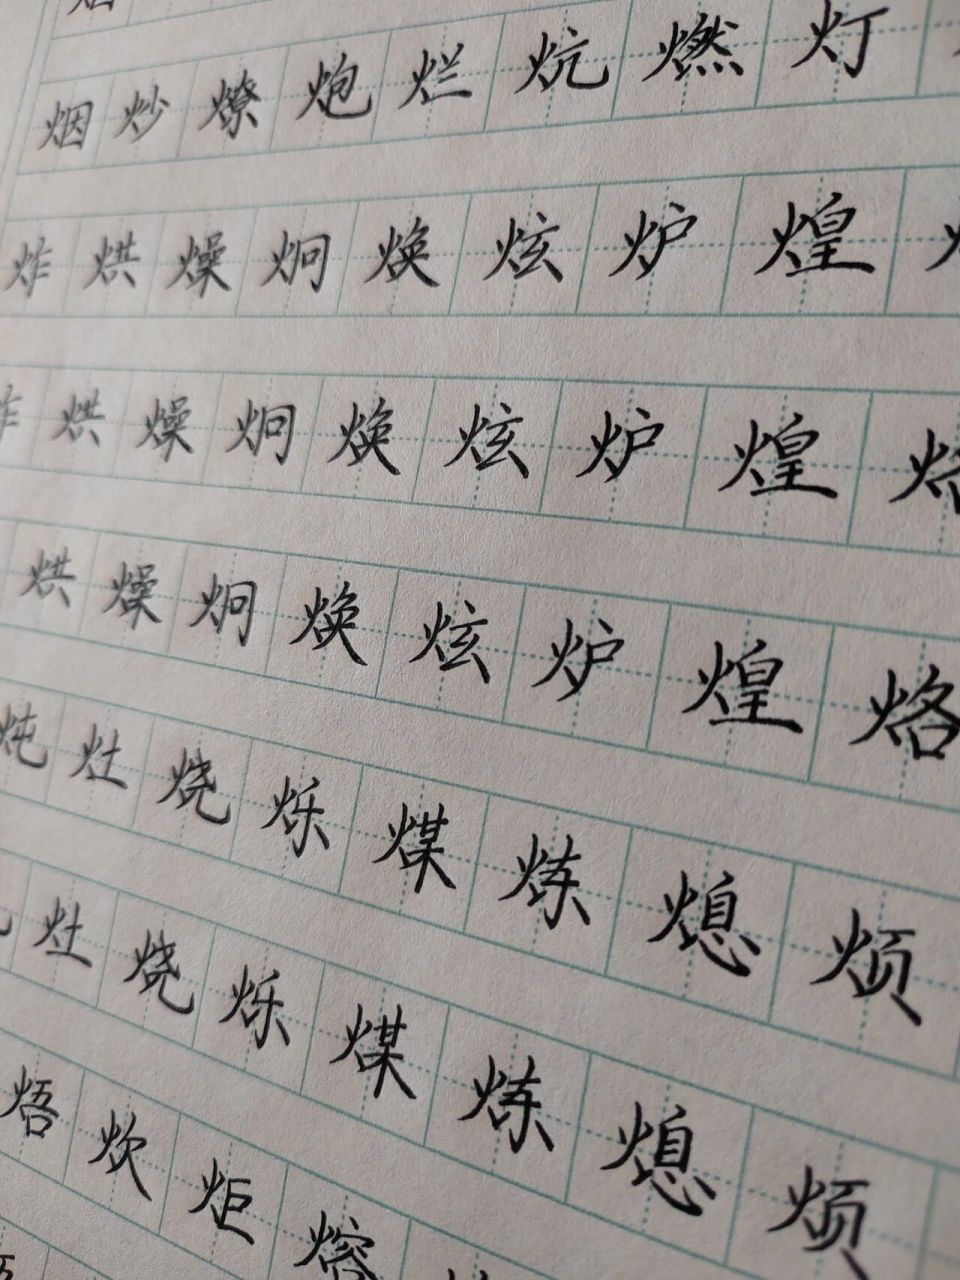 烟
烟炒燎炮烂炕燃灯
炸烘燥炯焕炫炉煌
炸烘燥炯焕炫炉煌烙
烘燥炯焕炫炉煌烙
炖灶烧烁煤炼熄烦
灶烧烁煤炼熄烦
焐炊炬熔